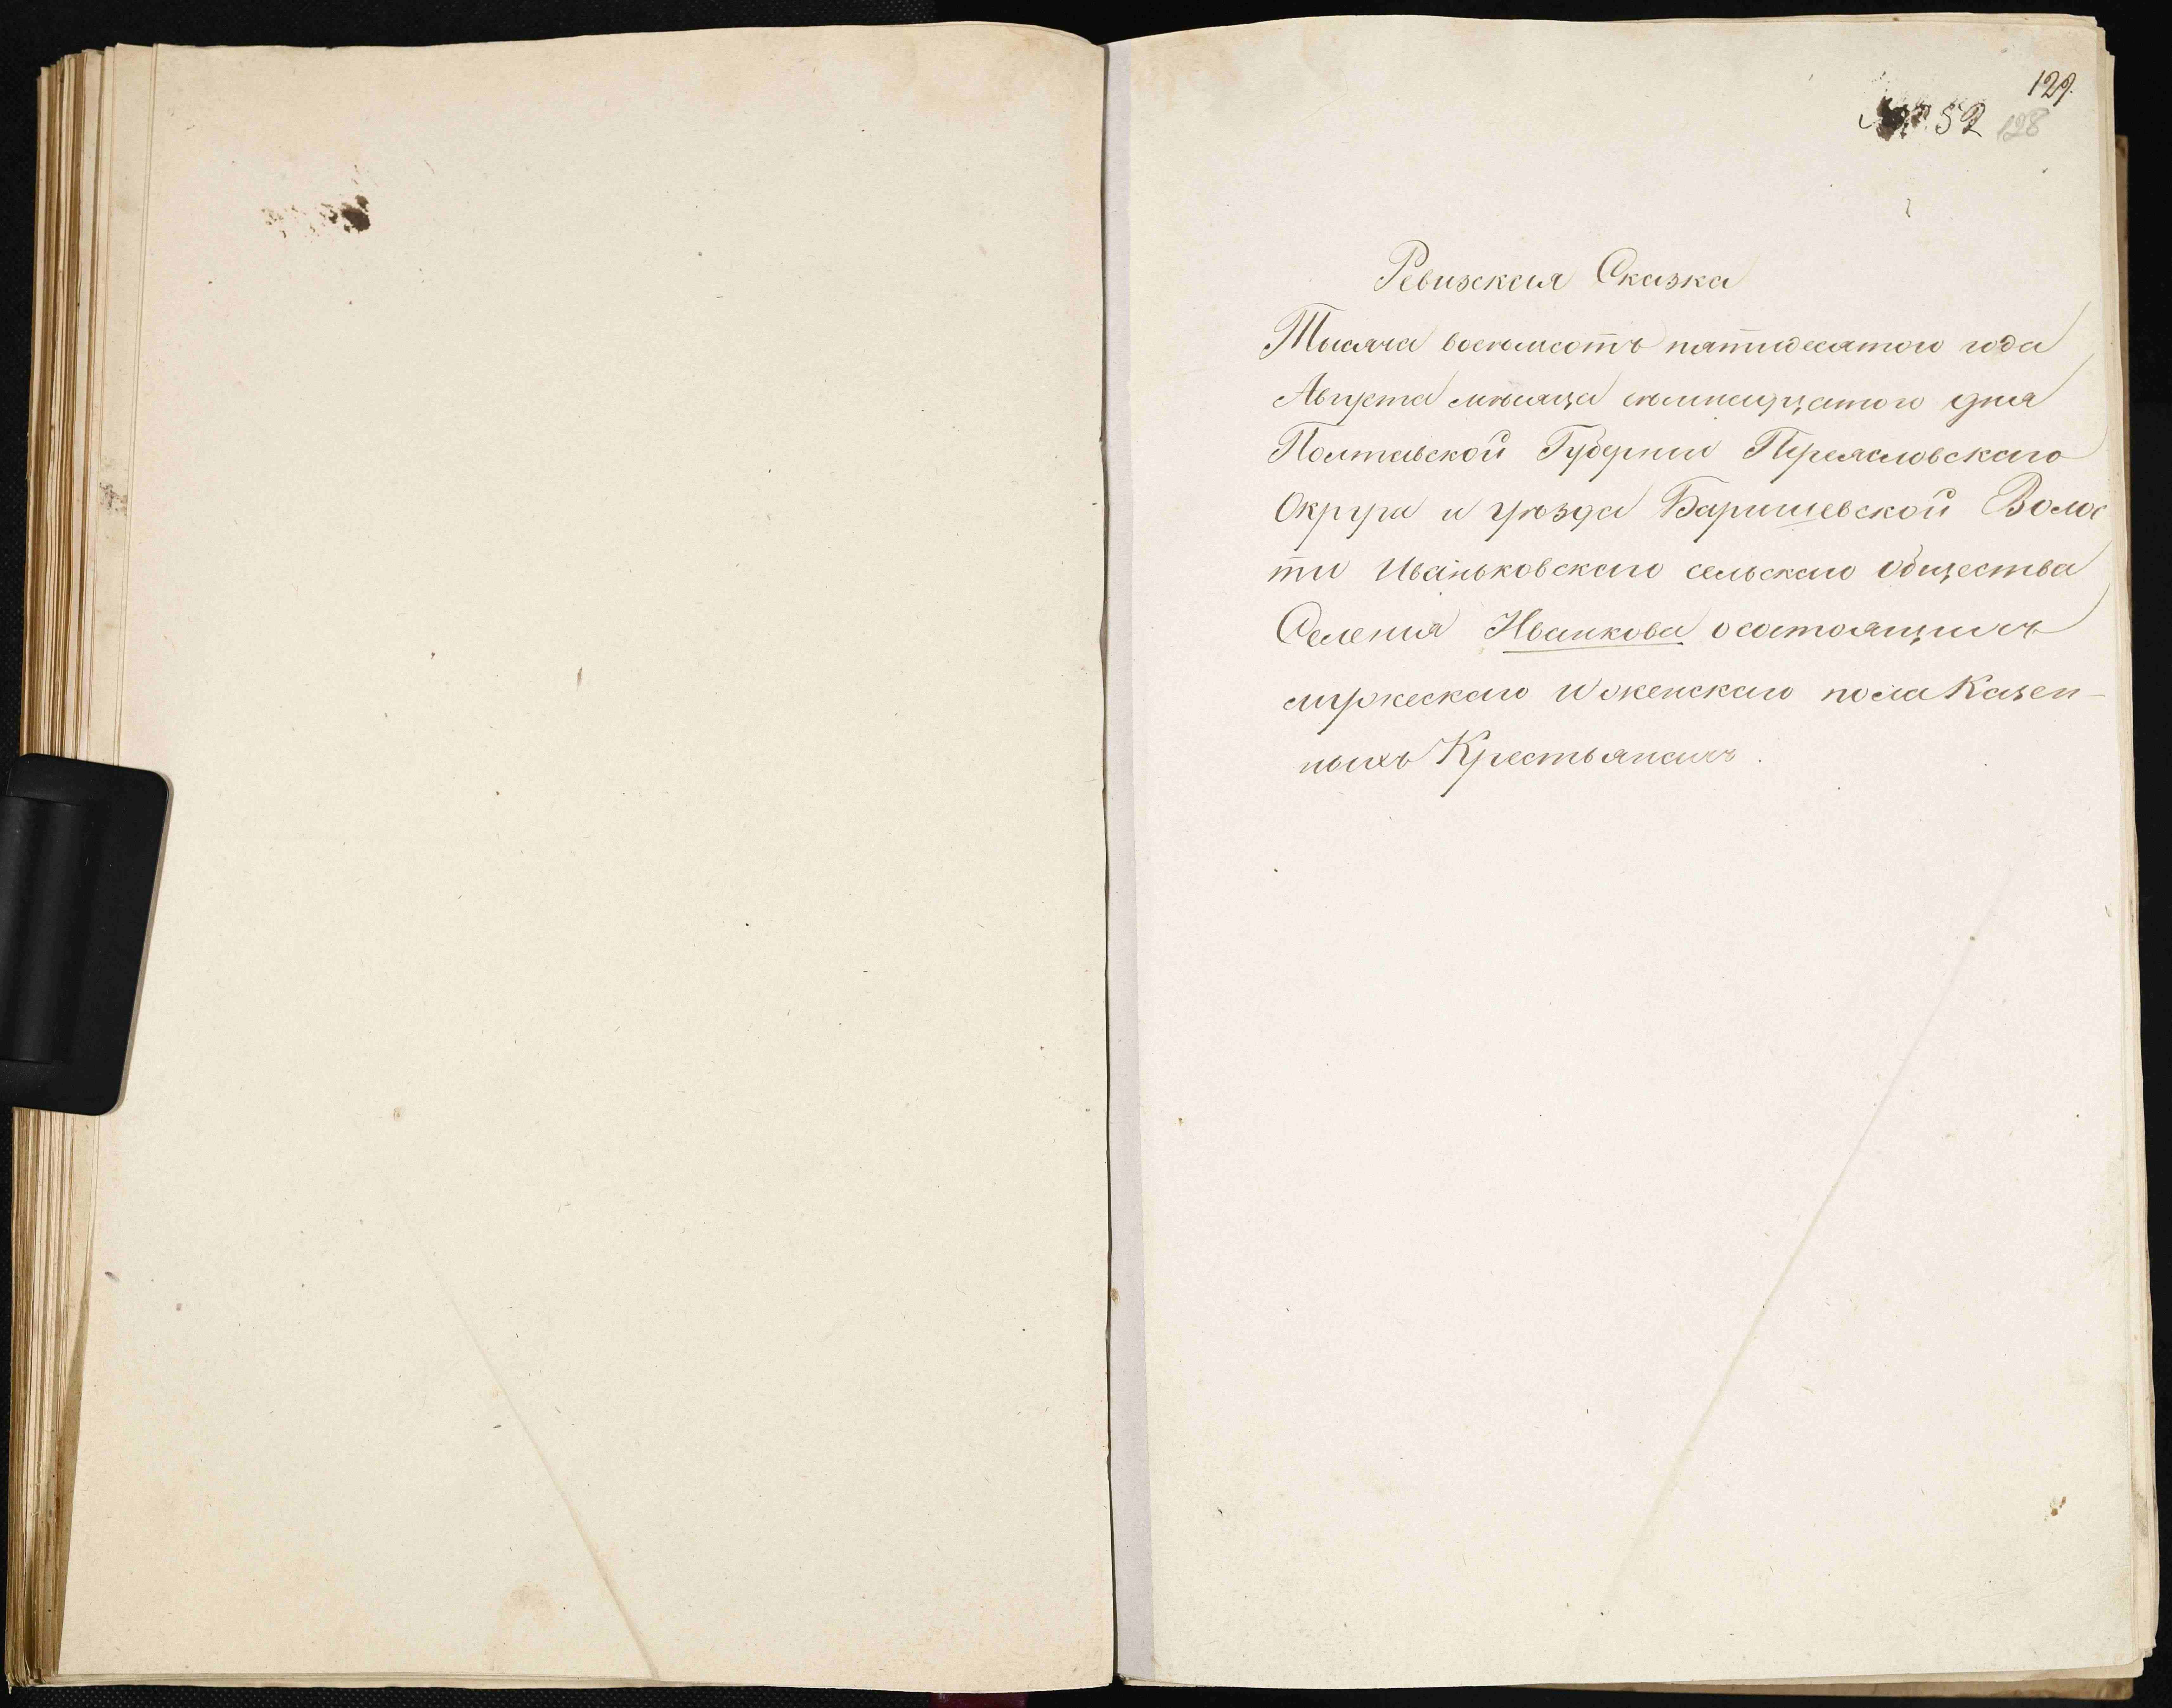 129.
№ 52 128
Ревизская Сказка
Тысяча восемьсотъ пятидесятого года
Августа мѣсяца семнадцатого дня
Полтавской Губерніи Переясловскаго
Округа и уѣзда Баришевской Волос
ти Иваньковскаго сельскаго общества
Селенія Иванкова о состоящихъ
мужескаго и женскаго пола Казен-
ныхъ Крестьянахъ.